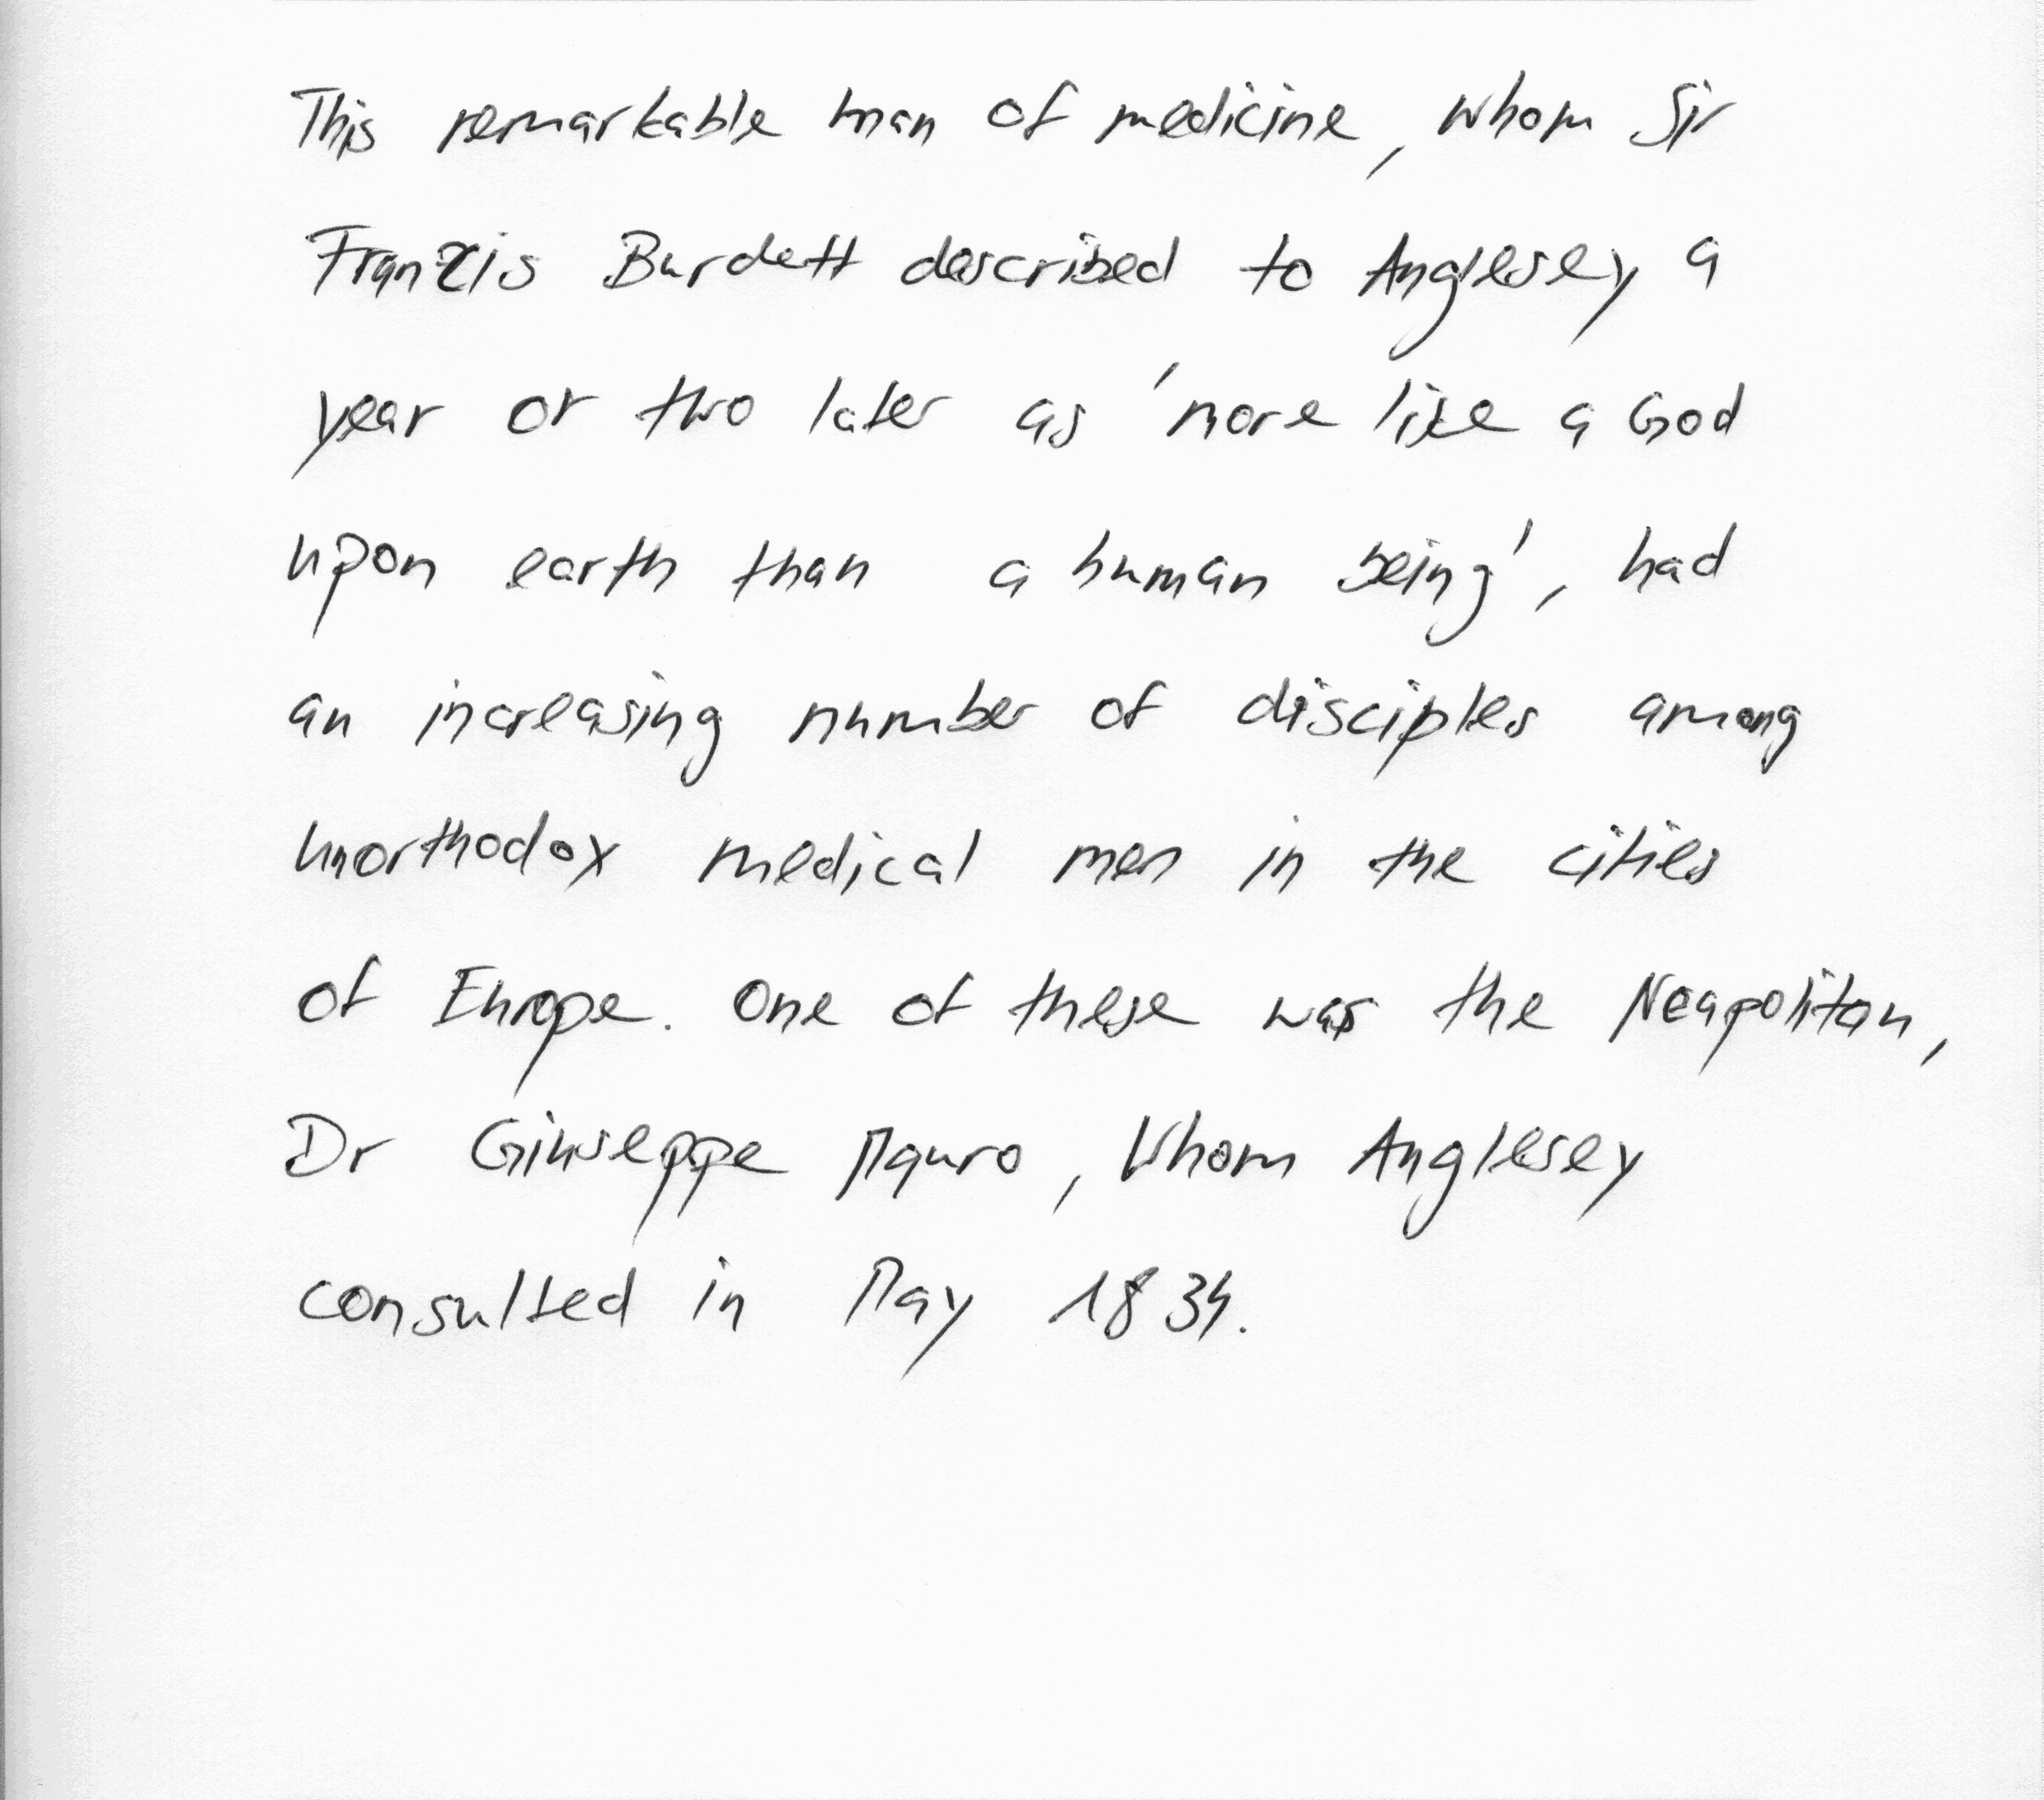 This remarkable man of medicine, whom Sir
Francis Burdett described to Anglesey a
year or two later as 'more like a God
upon earth than a human being', had
an increasing number of disciples among
unorthodox medical men in the cities
of Europe. One of these was the Neapolitan,
Dr Giuseppe Mauro, whom Anglesey
consulted in May 1834.